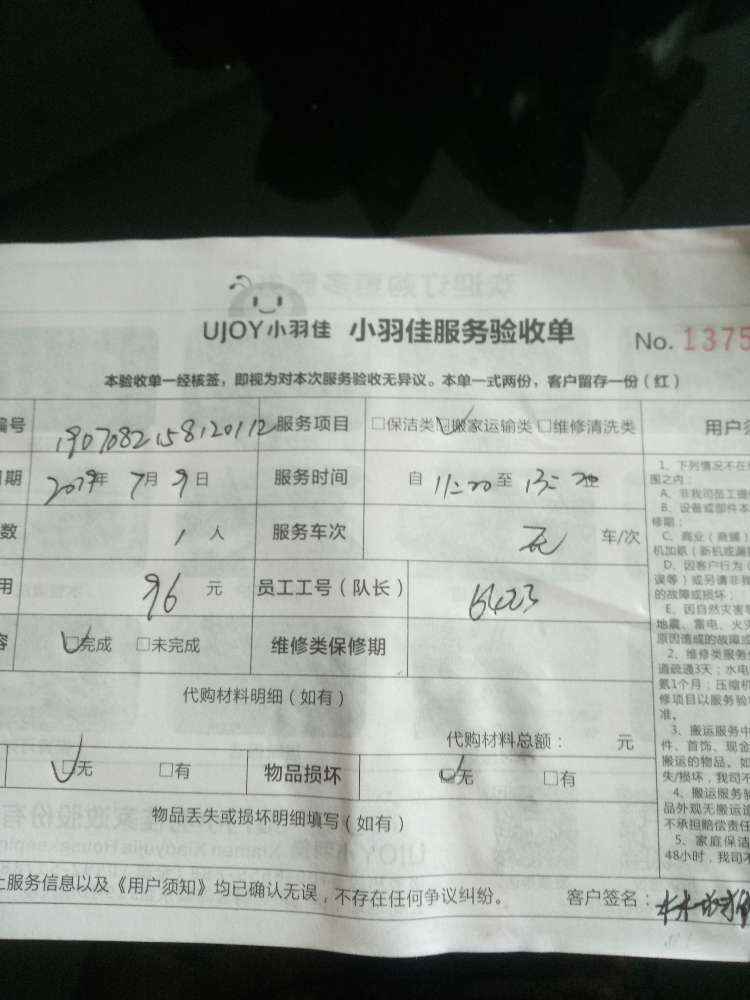 UJOY小羽佳 小羽佳服务验收单 No. 1375
本验收单一经核签，即视为对本次服务验收无异议。本单一式两份，客户留存一份（红）
编号 1907082158120112 服务项目 □保洁类 ☑搬家运输类 □维修清洗类 用户须
期 2019年 7月 9日 服务时间 自 11:20 至 13:20
数 1 人 服务车次 无 车/次
用 96 元 员工工号（队长） 6423
容 ☑完成 □未完成 维修类保修期
代购材料明细（如有）
代购材料总额： 元
☑无 □有 物品损坏 ☑无 □有
物品丢失或损坏明细填写（如有）
上服务信息以及《用户须知》均已确认无误，不存在任何争议纠纷。 客户签名：
1、下列情况不在
围之内：
A、非我司员工提
B、设备或部件本
修期；
C、商业（商铺）
机加氨（新机或漏
D、因客户行为（
误等）或另请非我
的故障或损坏；
E、因自然灾害等
地震、雷电、火灾
原因造成的故障或
2、维修类服务
道疏通3天；水电
氨1个月；压缩机
修项目以服务验收
准。
3、搬运服务中
件、首饰、现金
搬运的物品。如
失/损坏，我司不
4、搬运服务验
品外观无搬运造
不承担赔偿责任
5、家庭保洁
48小时，我司不